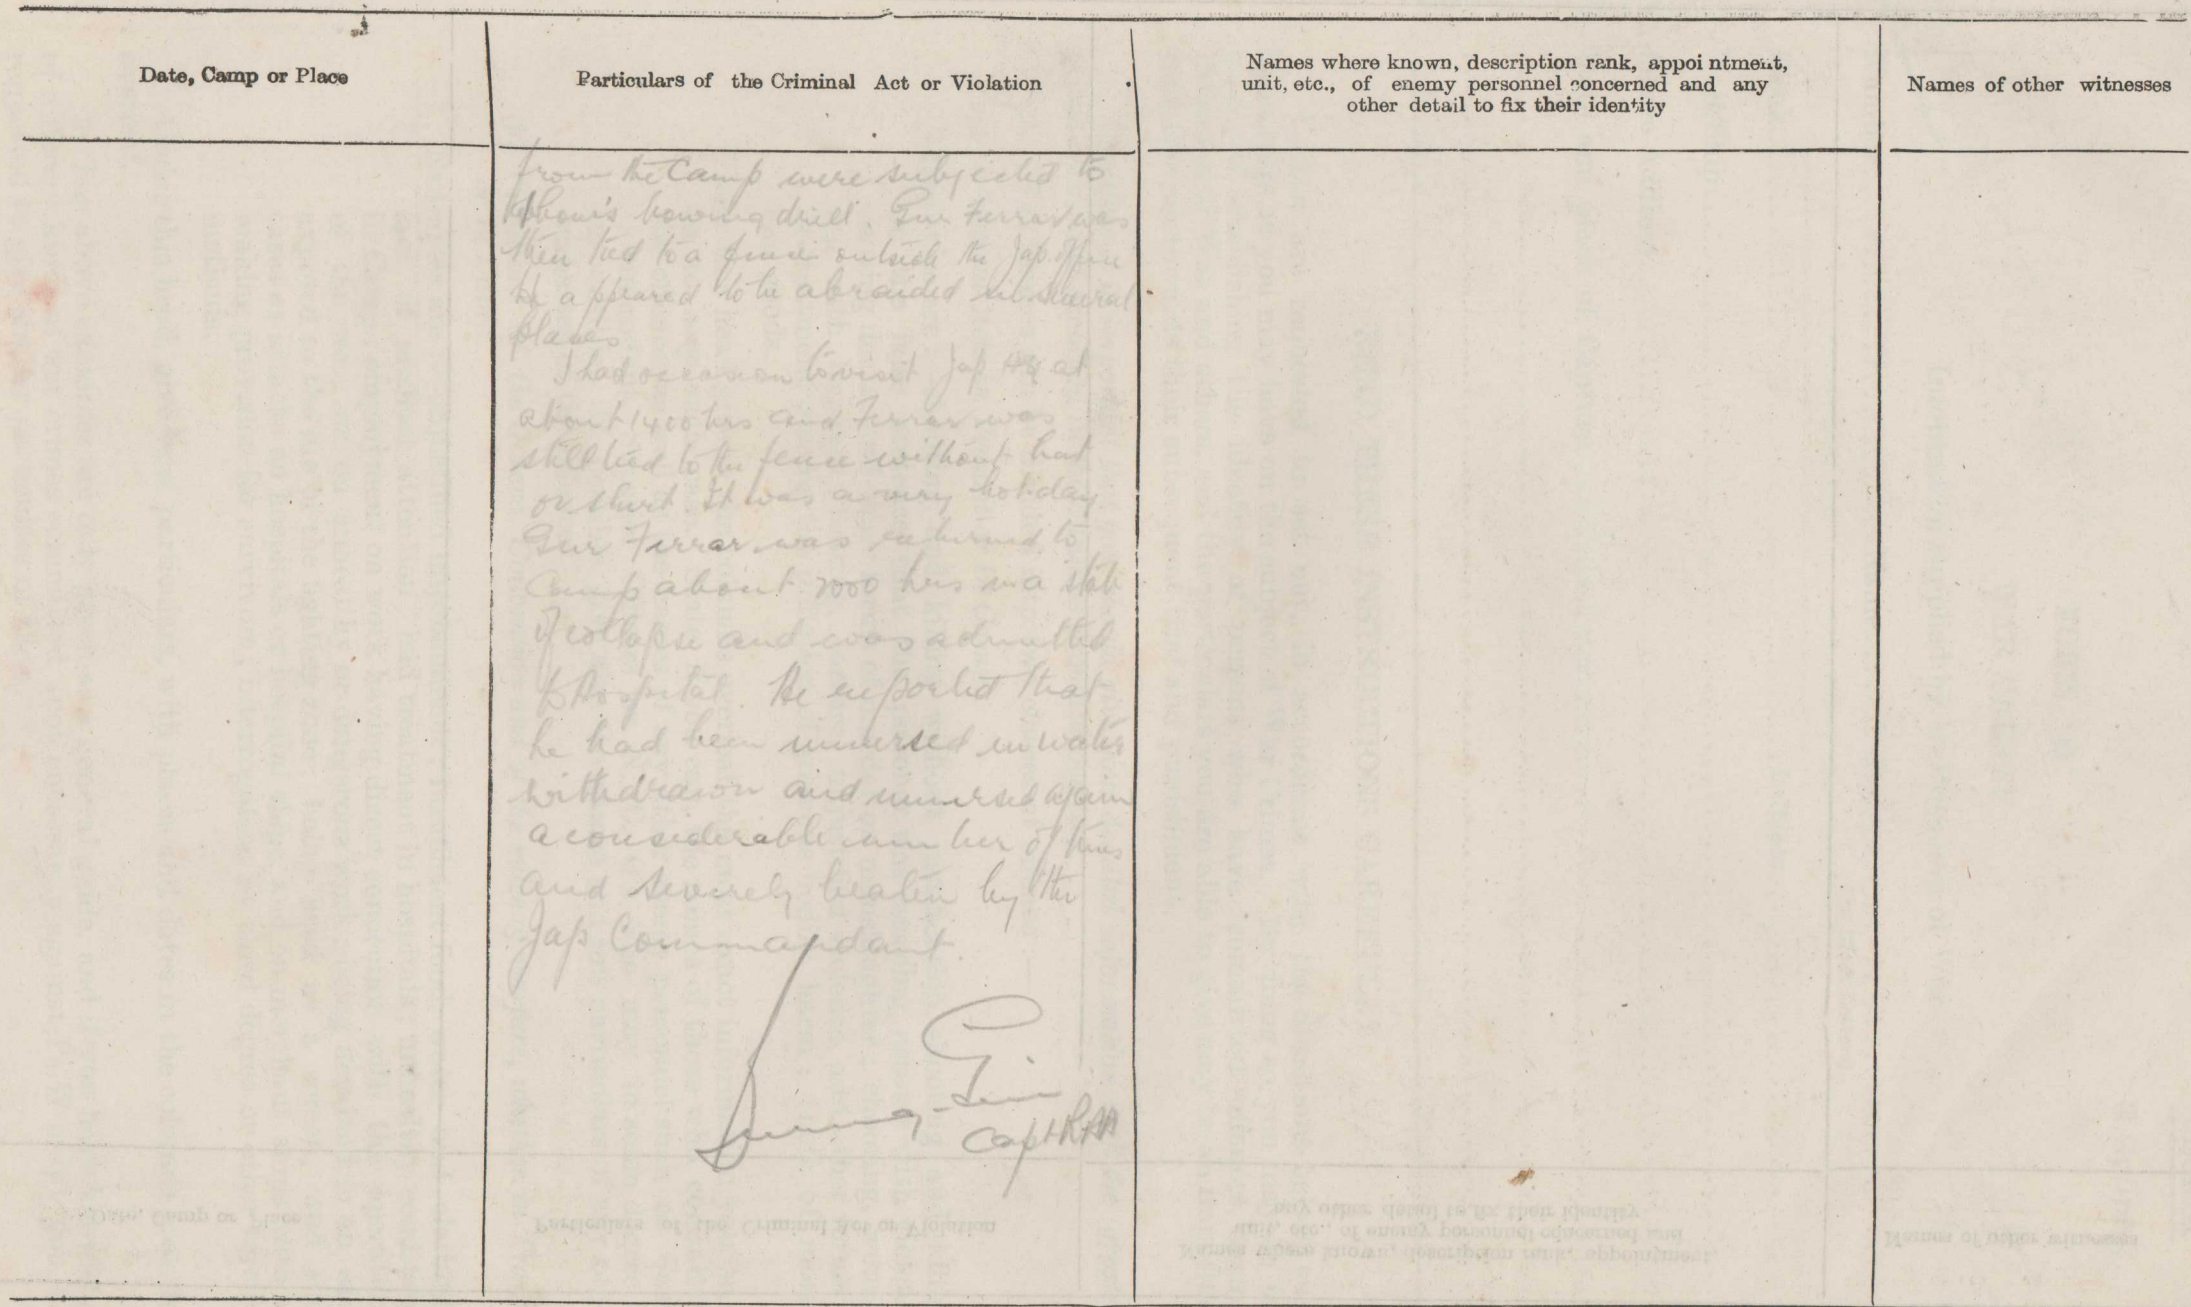 Date, Camp or Place
Particulars of the Criminal Act or Violation
Names where known, description rank, appointment,
unit, etc., of enemy personnel concerned and any
other detail to fix their identity
Names of other witnesses
from the Camp were subjected to
hour's bowing drill. Gnr Ferrar was
then tied to a fence outside the Jap office
He appeared to be abraided in several
places.
I had occasion to visit Jap HQ at
about 1400 hrs and Ferrar was
still tied to the fence without hat
or shirt. It was a very hot day
Gnr Ferrar was returned to
Camp about 2000 hrs in a state
of collapse and was admitted
to Hospital. He reported that
he had been immersed in water
withdrawn and immersed again
a considerable number of times
and severely beaten by the
Jap Commandant.
Capt RAA